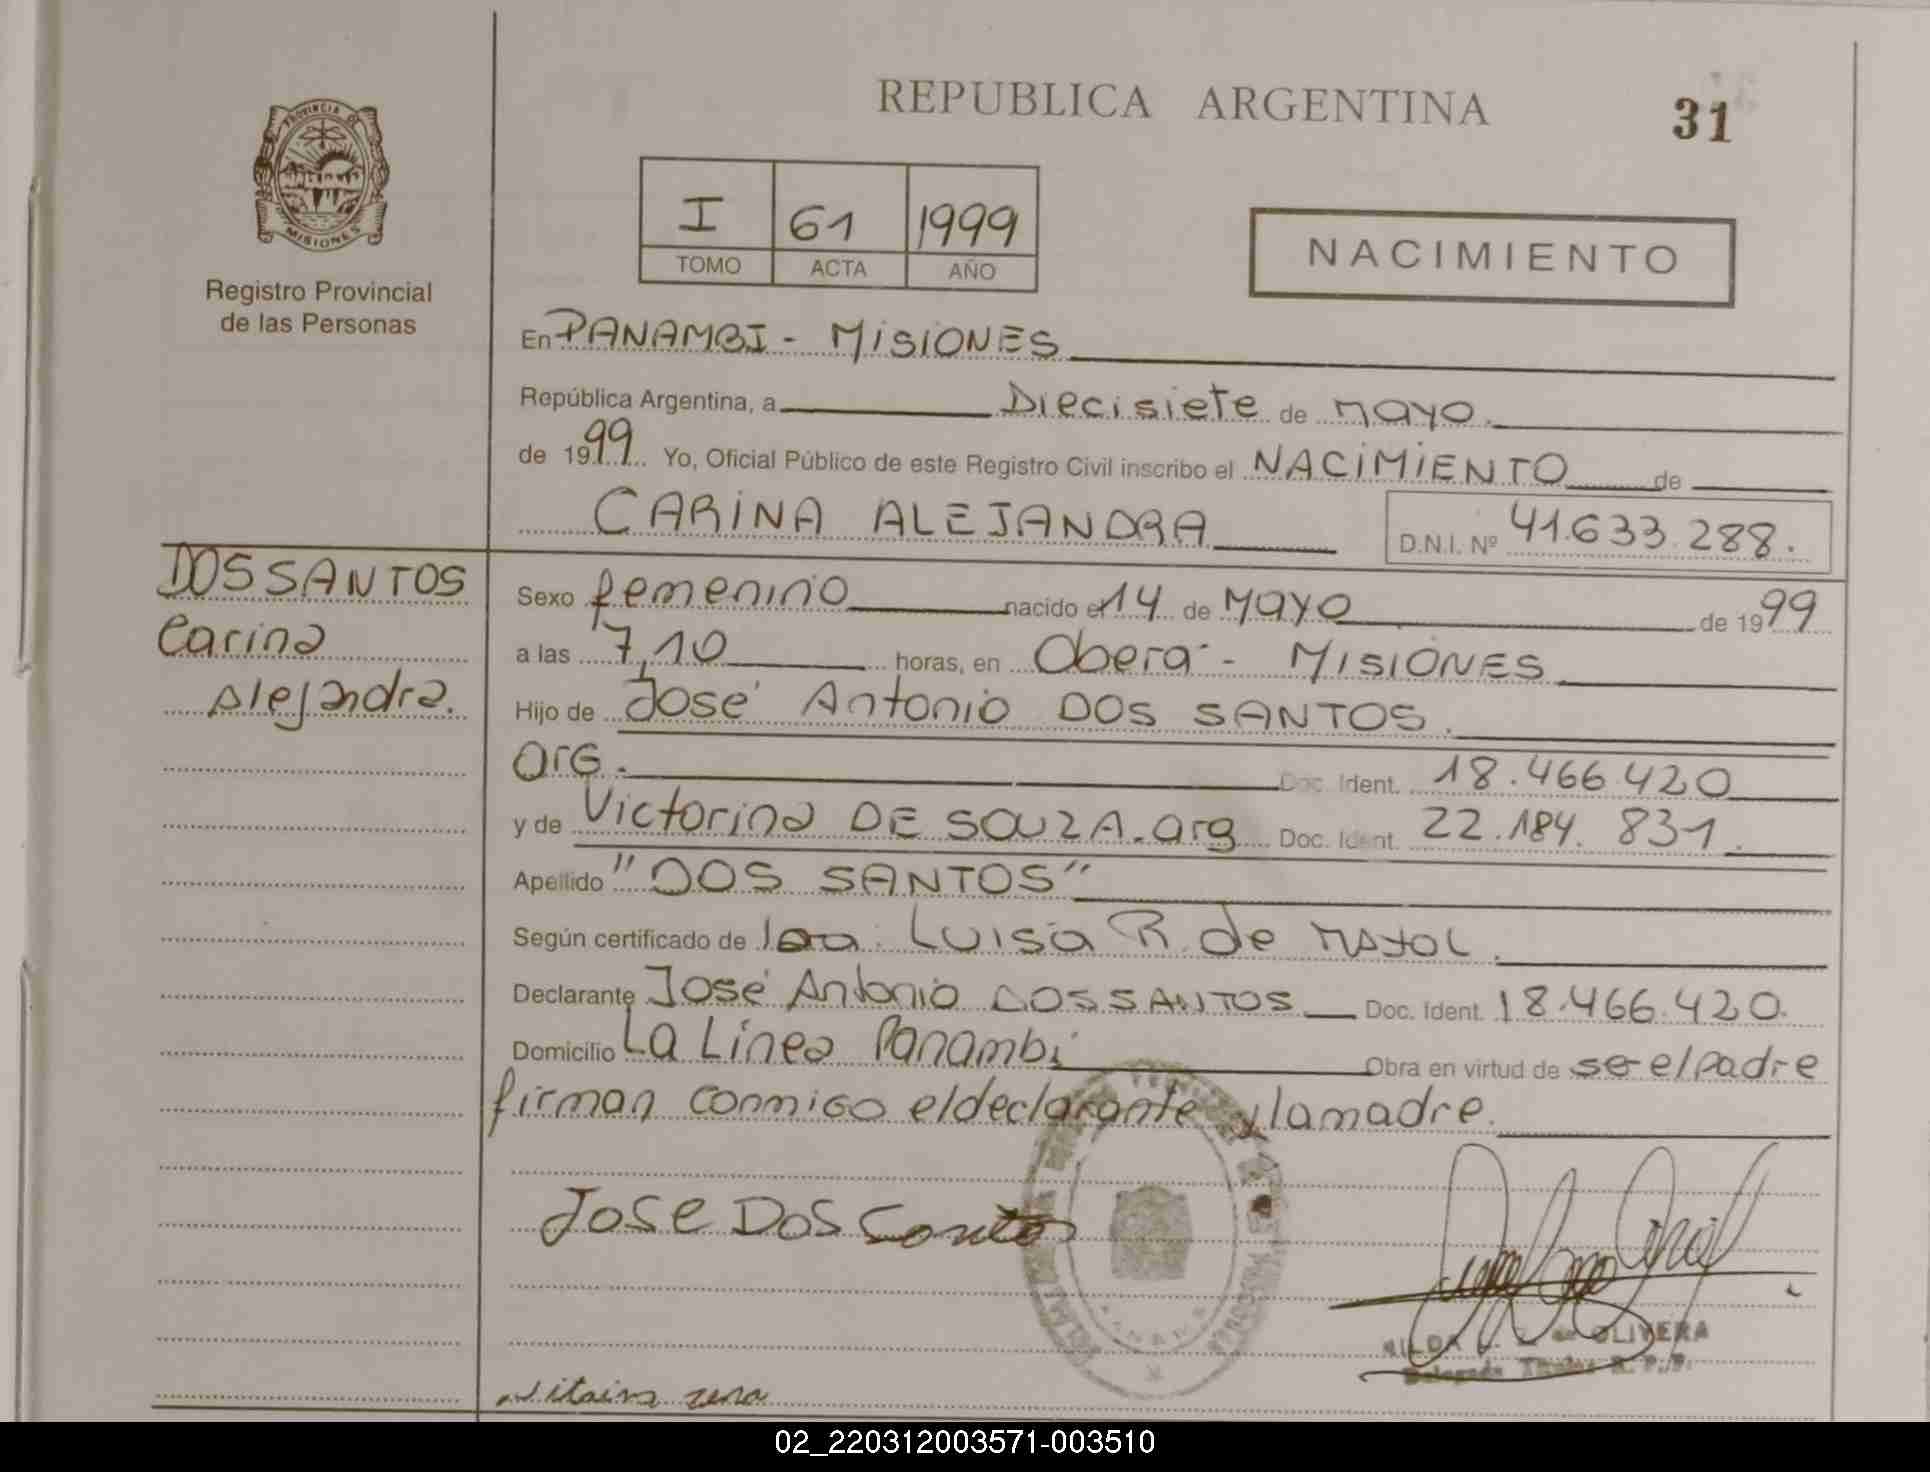 REPUBLICA ARGENTINA
31
PROVINCIA DE
MISIONES
Registro Provincial
de las Personas
I 61 1999
TOMO ACTA AÑO
NACIMIENTO
En PANAMBI - MISIONES
República Argentina, a Diecisiete de mayo.
de 1999 Yo, Oficial Público de este Registro Civil inscribo el NACIMIENTO de
CARINA ALEJANDRA D.N.I. Nº 41.633.288.
DOS SANTOS
Carina
Alejandra.
Sexo femenino nacido el 14 de MAYO de 1999
a las 7,10 horas, en Oberá - MISIONES
Hijo de José Antonio DOS SANTOS.
arg. Doc. Ident. 18.466.420
y de Victorina DE SOUZA. arg Doc. Ident. 22.184.831.
Apellido "DOS SANTOS"
Según certificado de Luisa R. de MAYOL.
Declarante José Antonio DOS SANTOS Doc. Ident. 18.466.420.
Domicilio LA Línea Panambi Obra en virtud de ser el padre
firman conmigo el declarante y la madre.
Jose Dos Santos
HILDA de OLIVERA
Delegada Titular R. P. P.
02_220312003571-003510